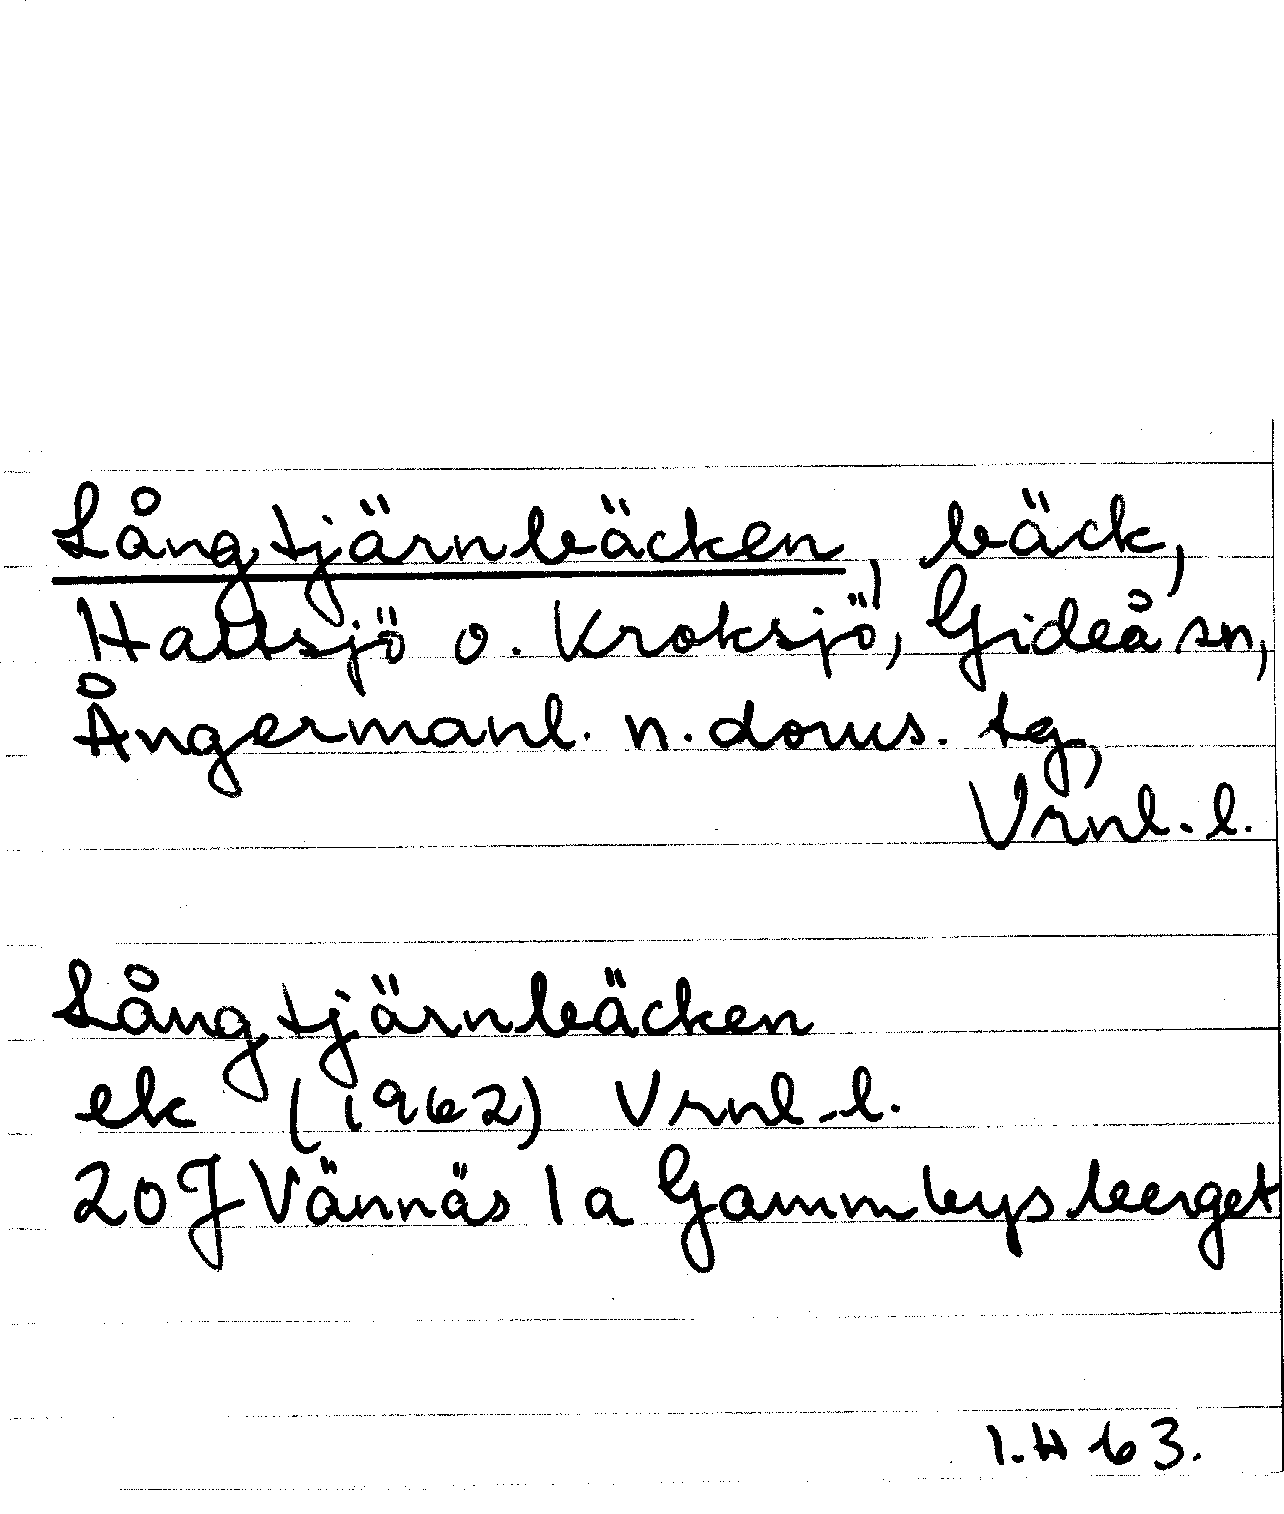 Långtjärnbäcken, bäck,
Hallsjö o. Kroksjö, Gideå sn,
Ångermanl. n. doms. tg,
Vrnl. l.
Långtjärnbäcken
ek (1962) Vrnl. l.
20J Vännäs 1a Gammbysberget
I.H 63.